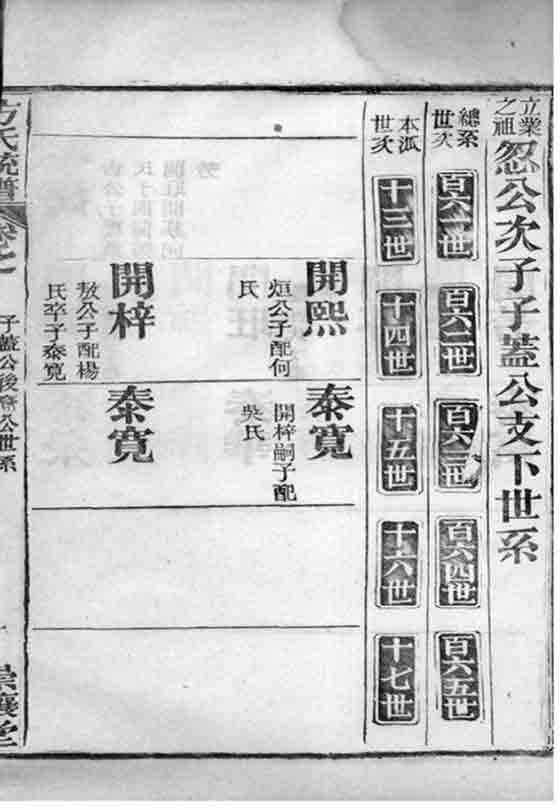 立業之祖
忍公次子子蓋公支下世系
總系世次
百六一世
百六二世
百六三世
百六四世
百六五世
本派世次
十三世
十四世
十五世
十六世
十七世
開熙
烜公子配何
氏
泰寬
開梓嗣子配
吳氏
開梓
敖公子配楊
氏卒子泰寬
泰寬
方氏統譜
卷七
子蓋公後
公世系
崇讓堂